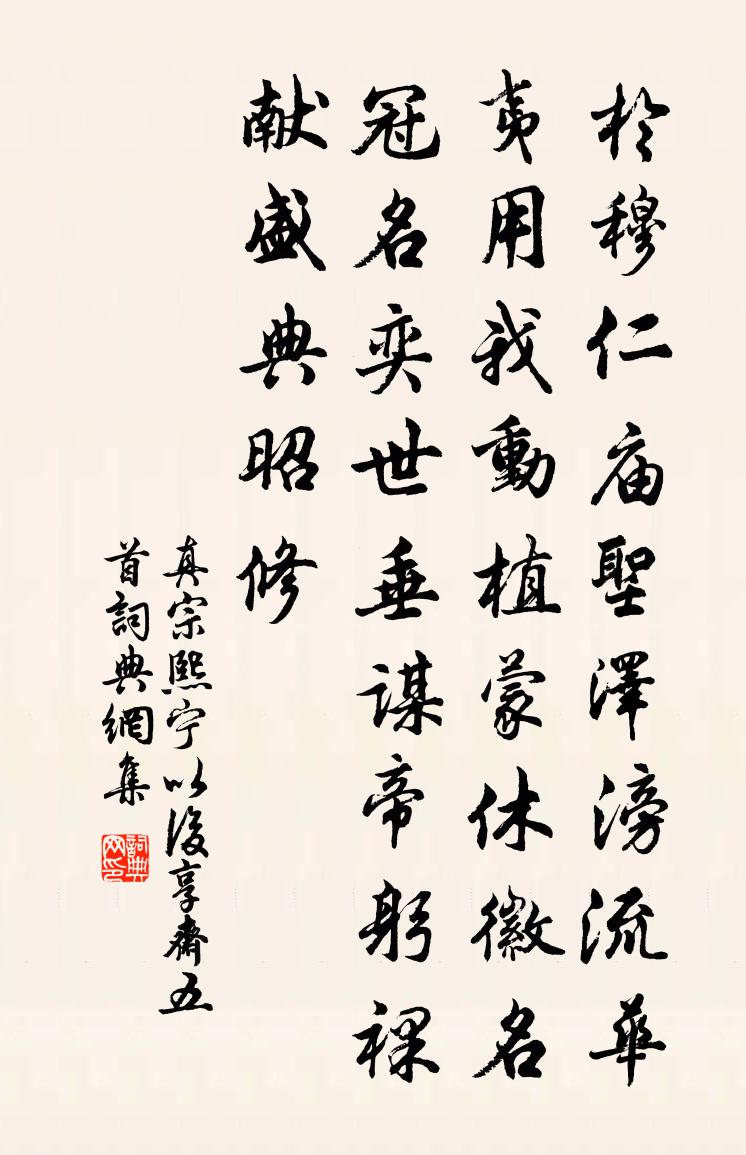 於穆仁庙聖澤滂流華
夷用我動植蒙休徽名
冠名奕世垂謀帝躬祼
献盛典昭修
真宗熙宁以後享齋五
首詞典網集
詞典网印